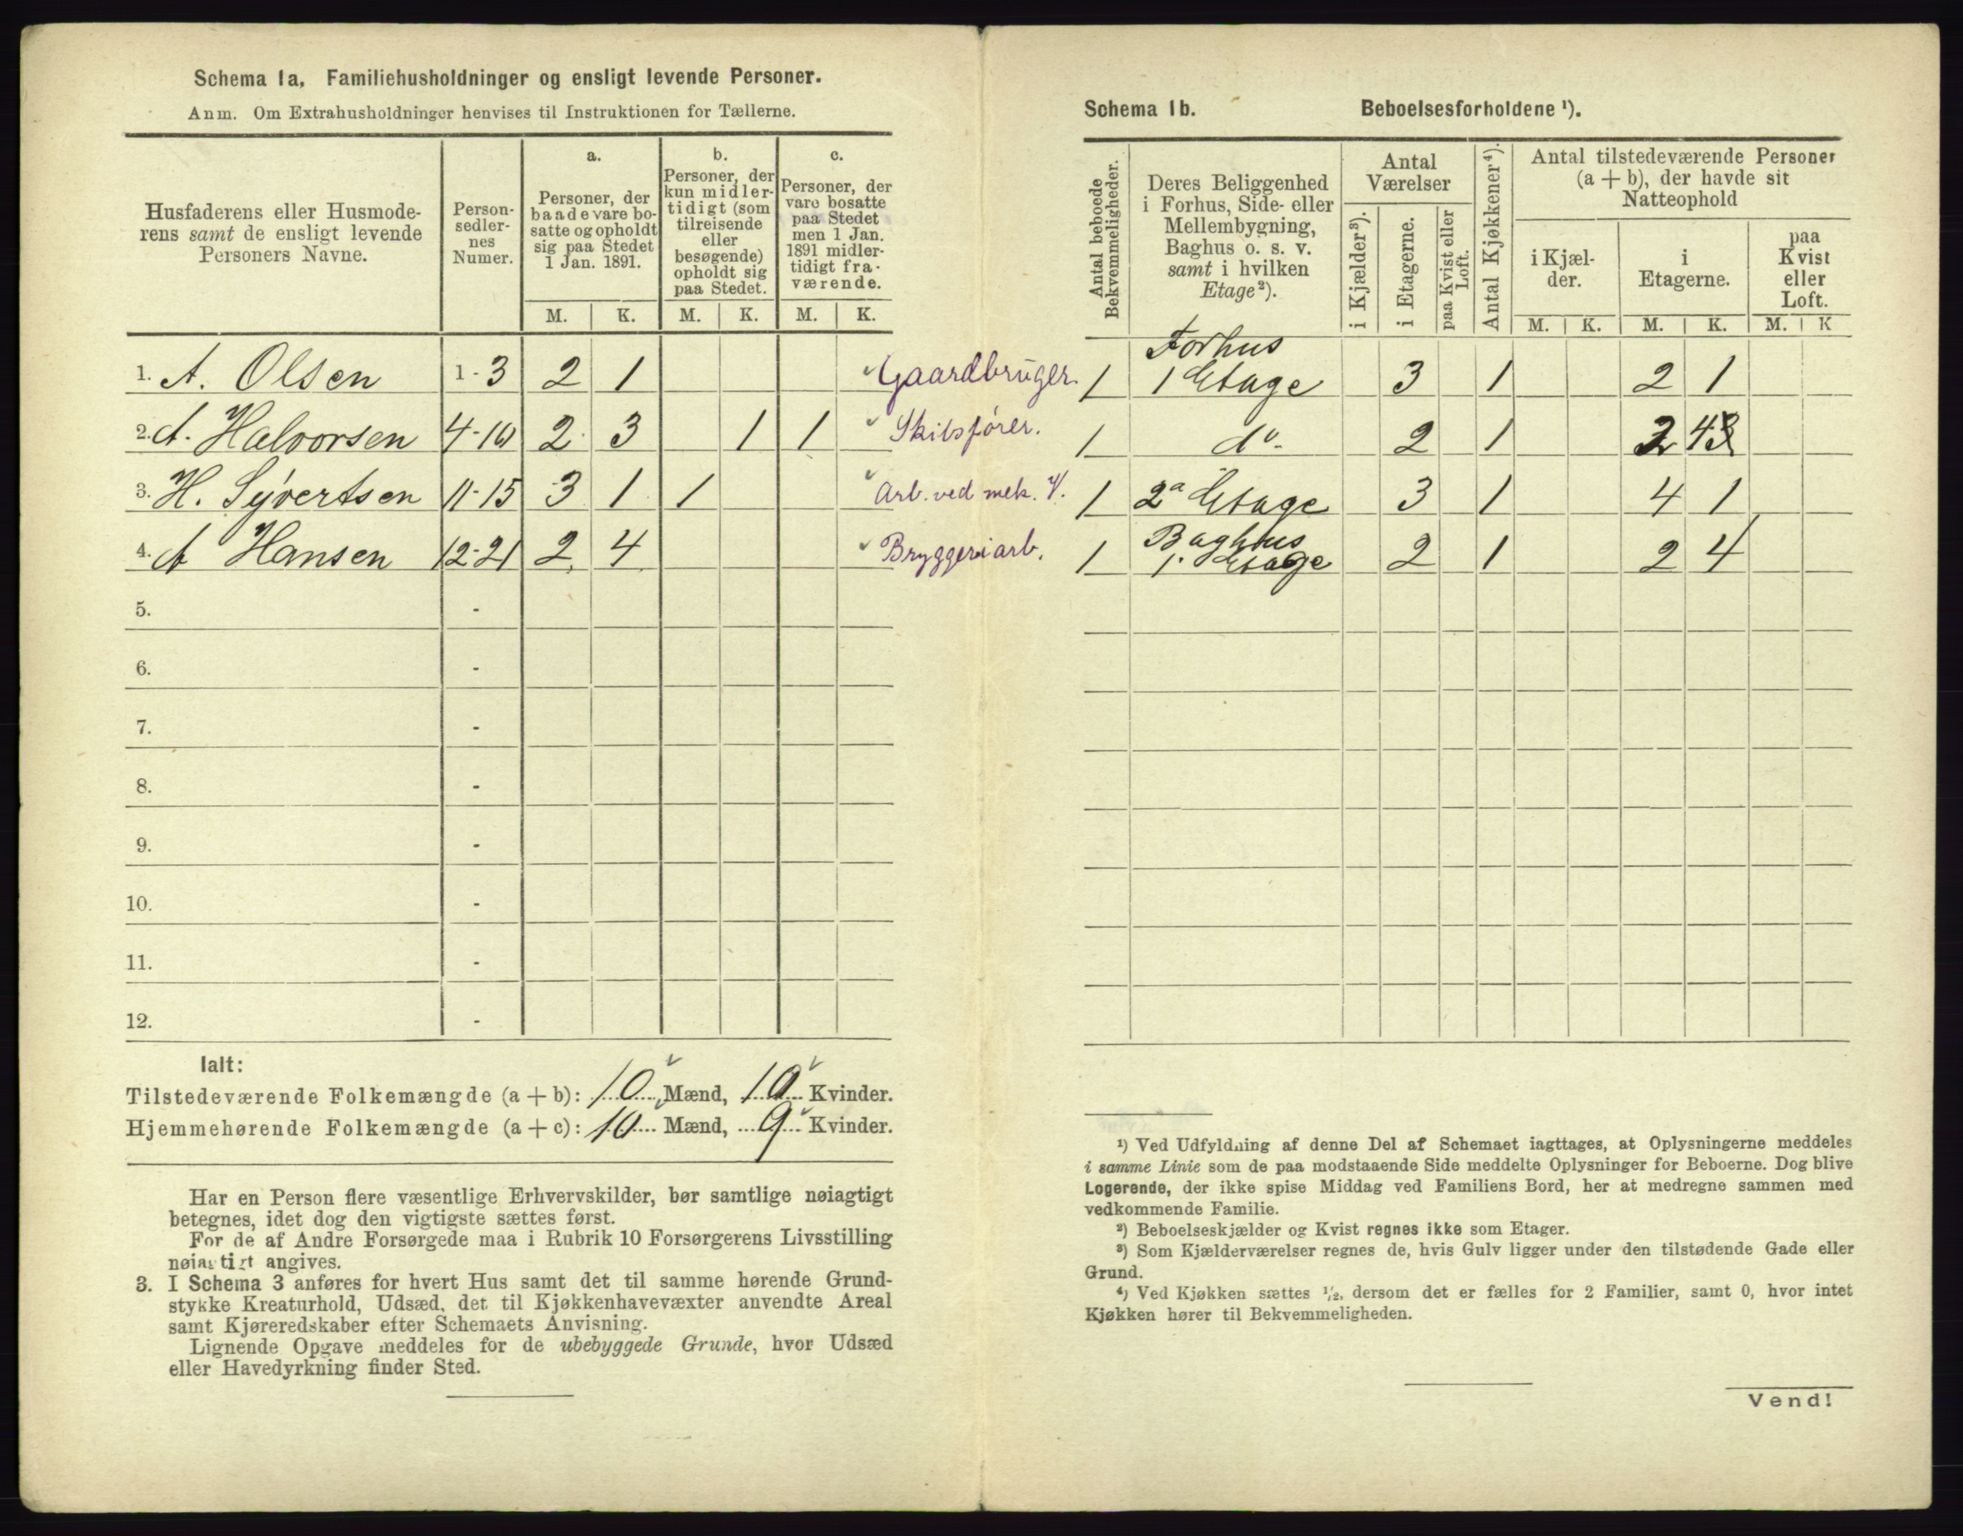 Schema 1a. Familiehusholdninger og ensligt levende Personer.
Anm. Om Extrahusholdninger henvises til Instruktionen for Tællerne.
Husfaderens eller Husmoderens samt de ensligt levende Personers Navne.
Personsedlernes Numer.
a. Personer, der baade vare bosatte og opholdt sig paa Stedet 1 Jan. 1891.
b. Personer, der kun midlertidigt (som tilreisende eller besøgende) opholdt sig paa Stedet.
c. Personer, der vare bosatte paa Stedet men 1 Jan. 1891 midlertidigt fraværende.
M. K. M. K. M. K.
1. A. Olsen 1-3 2 1 Gaardbruger.
2. A. Halvorsen 4-10 2 3 1 1 Skibsfører.
3. H. Syvertsen 11-15 3 1 1 Arb. ved mek. V.
4. A Hansen 12-21 2 4 Bryggeriarb.
5. -
6. -
7. -
8. -
9. -
10. -
11. -
12. -
Ialt:
Tilstedeværende Folkemængde (a + b): 10 Mænd, 10 Kvinder.
Hjemmehørende Folkemængde (a + c): 10 Mænd, 9 Kvinder.
Har en Person flere væsentlige Erhvervskilder, bør samtlige nøiagtigt
betegnes, idet dog den vigtigste sættes først.
For de af Andre Forsørgede maa i Rubrik 10 Forsørgerens Livsstilling
nøiagtigt angives.
3. I Schema 3 anføres for hvert Hus samt det til samme hørende Grund-
stykke Kreaturhold, Udsæd, det til Kjøkkenhavevæxter anvendte Areal
samt Kjøreredskaber efter Schemaets Anvisning.
Lignende Opgave meddeles for de ubebyggede Grunde, hvor Udsæd
eller Havedyrkning finder Sted.
Schema 1b. Beboelsesforholdene ¹).
Antal beboede Bekvemmeligheder.
Deres Beliggenhed i Forhus, Side- eller Mellembygning, Baghus o. s. v. samt i hvilken Etage²).
Antal Værelser
i Kjælder³).
i Etagerne.
paa Kvist eller Loft.
Antal Kjøkkener⁴).
Antal tilstedeværende Personer (a + b), der havde sit Natteophold
i Kjælder.
i Etagerne.
paa Kvist eller Loft.
M. K. M. K. M. K
1 Forhus 1 Etage 3 1 2 1
1 do- 2 1 2 4
1 2a Etage 3 1 4 1
1 Baghus 1. Etage 2 1 2 4
¹) Ved Udfyldning af denne Del af Schemaet iagttages, at Oplysningerne meddeles
i samme Linie som de paa modstaaende Side meddelte Oplysninger for Beboerne. Dog blive
Logerende, der ikke spise Middag ved Familiens Bord, her at medregne sammen med
vedkommende Familie.
²) Beboelseskjælder og Kvist regnes ikke som Etager.
³) Som Kjælderværelser regnes de, hvis Gulv ligger under den tilstødende Gade eller
Grund.
⁴) Ved Kjøkken sættes ½, dersom det er fælles for 2 Familier, samt 0, hvor intet
Kjøkken hører til Bekvemmeligheden.
Vend!